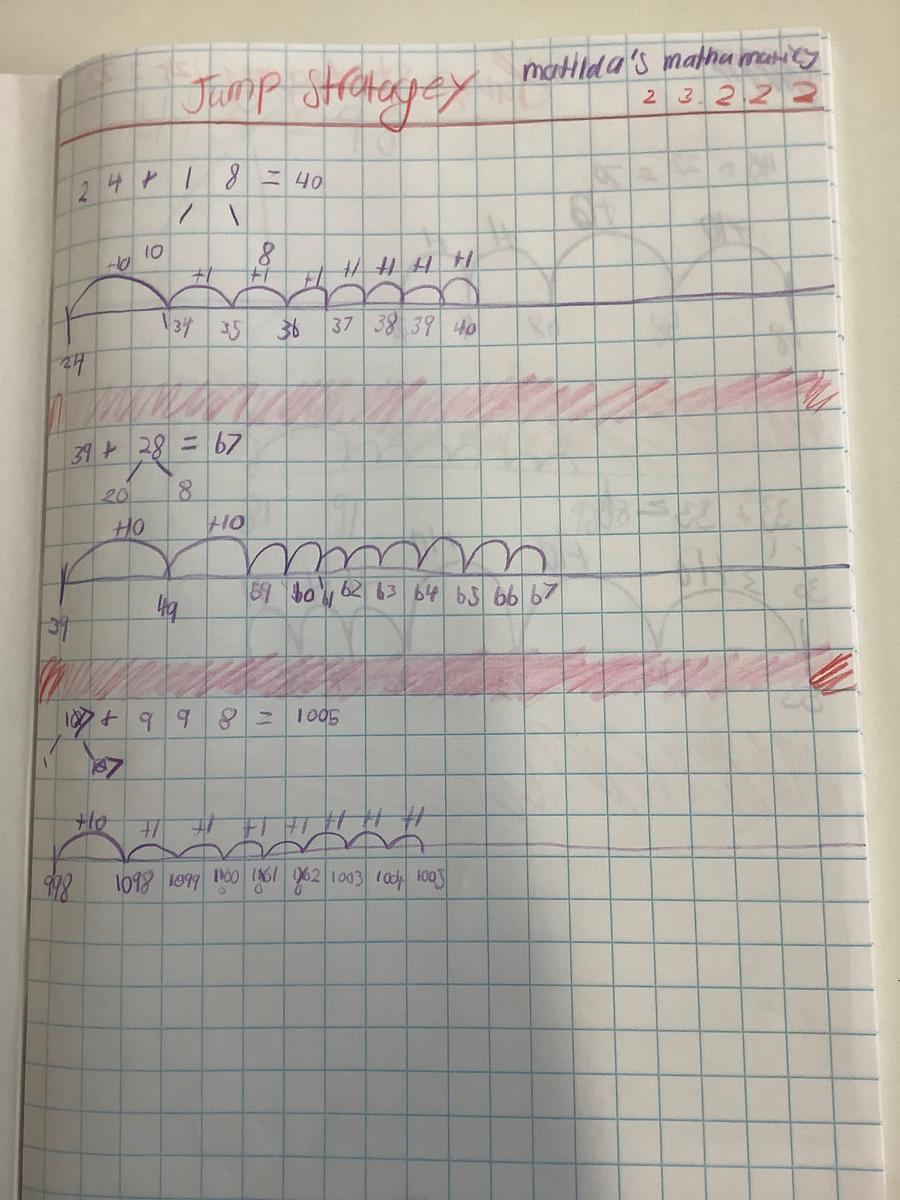 matilda's mathamatics
Jump stratagey 2 3. 2 2 2
2 4 + 1 8 = 40
10 8
+10 +1 +1 +1 +1 +1 +1 +1
24 34 35 36 37 38 39 40
39 + 28 = 67
20 8
+10 +10
39 49 59 60 61 62 63 64 65 66 67
+ 9 9 8 = 1005
+10 +1 +1 +1 +1 +1 +1 +1
998 1098 1099 1003 1004 1005